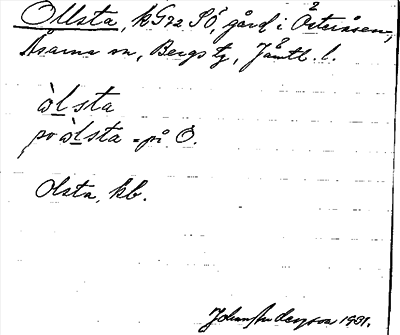 Ollsta, kG72 SÖ, gård i Österåsen,
Åsarne sn, Bergs tg, Jämtl. l.
ò̀lsta
pο ò̀lsta = på O.
Olsta, kb.
Johan Anderson 1931.